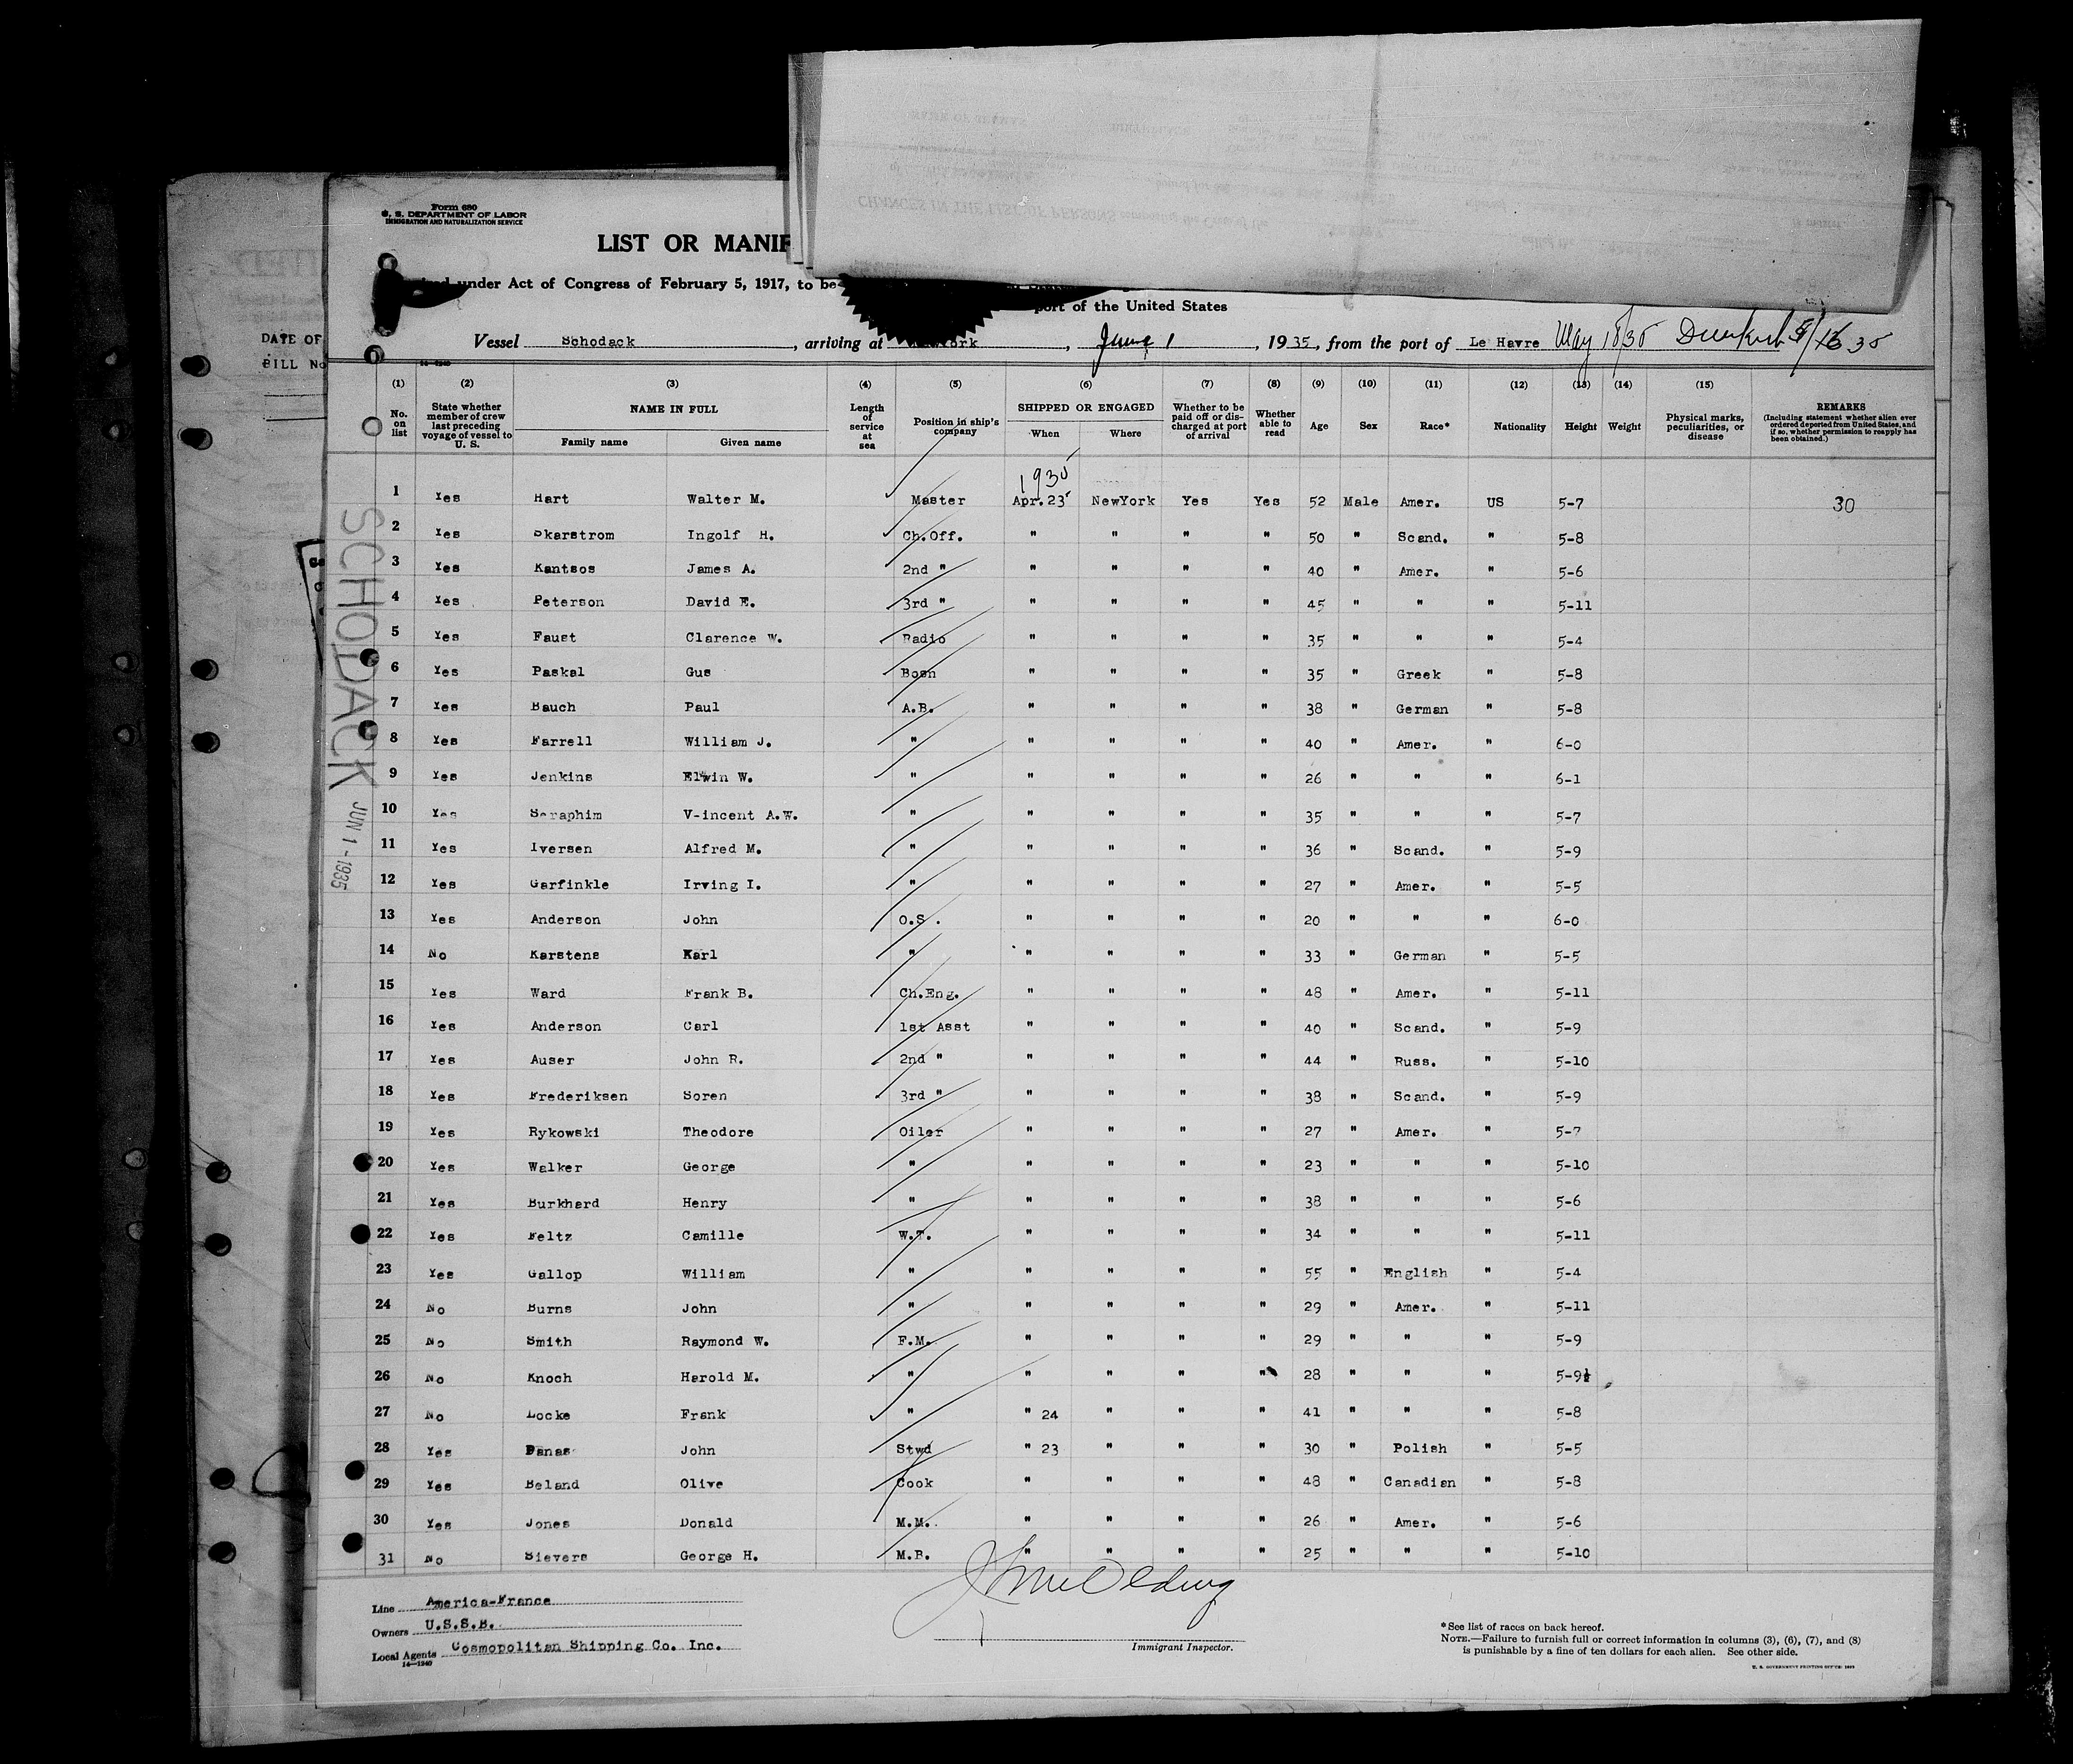 Form 680
U. S. DEPARTMENT OF LABOR
IMMIGRATION AND NATURALIZATION SERVICE
LIST OR MANIF
under Act of Congress of February 5, 1917, to be
port of the United States
Vessel Schodack, arriving at York, June 1, 1935, from the port of Le Havre May 18/35 Dunkirk
DATE OF
BILL No
(1) (2) (3) (4) (5) (6) (7) (8) (9) (10) (11) (12) (13) (14) (15)
No. on list State whether member of crew last preceding voyage of vessel to U. S. NAME IN FULL Family name Given name Length of service at sea Position in ship's company SHIPPED OR ENGAGED When Where Whether to be paid off or discharged at port of arrival Whether able to read Age Sex Race* Nationality Height Weight Physical marks, peculiarities, or disease REMARKS (Including statement whether alien ever ordered deported from United States, and if so, whether permission to reapply has been obtained.)
1935
1 Yes Hart Walter M. Master Apr. 23 NewYork Yes Yes 52 Male Amer. US 5-7 30
2 Yes Skarstrom Ingolf H. Ch.Off. " " " " 50 " Scand. " 5-8
3 Yes Kantsos James A. 2nd " " " " " 40 " Amer. " 5-6
4 Yes Peterson David E. 3rd " " " " " 45 " " " 5-11
5 Yes Faust Clarence W. Radio " " " " 35 " " " 5-4
6 Yes Paskal Gus Bosn " " " " 35 " Greek " 5-8
7 Yes Bauch Paul A.B. " " " " 38 " German " 5-8
8 Yes Farrell William J. " " " " " 40 " Amer. " 6-0
9 Yes Jenkins Elwin W. " " " " " 26 " " " 6-1
10 Yes Seraphim V-incent A.W. " " " " " 35 " " " 5-7
11 Yes Iversen Alfred M. " " " " " 36 " Scand. " 5-9
12 Yes Garfinkle Irving I. " " " " " 27 " Amer. " 5-5
13 Yes Anderson John O.S. " " " " 20 " " " 6-0
14 No Karstens Karl " " " " " 33 " German " 5-5
15 Yes Ward Frank B. Ch.Eng. " " " " 48 " Amer. " 5-11
16 Yes Anderson Carl 1st Asst " " " " 40 " Scand. " 5-9
17 Yes Auser John R. 2nd " " " " " 44 " Russ. " 5-10
18 Yes Frederiksen Soren 3rd " " " " " 38 " Scand. " 5-9
19 Yes Rykowski Theodore Oiler " " " " 27 " Amer. " 5-7
20 Yes Walker George " " " " " 23 " " " 5-10
21 Yes Burkhard Henry " " " " " 38 " " " 5-6
22 Yes Feltz Camille W.T. " " " " 34 " " " 5-11
23 Yes Gallop William " " " " " 55 " English " 5-4
24 No Burns John " " " " " 29 " Amer. " 5-11
25 No Smith Raymond W. F.M. " " " " 29 " " " 5-9
26 No Knoch Harold M. " " " " " 28 " " " 5-9½
27 No Locke Frank " " 24 " " " 41 " " " 5-8
28 Yes Panas John Stwd " 23 " " " 30 " Polish " 5-5
29 Yes Beland Olive Cook " " " " 48 " Canadian " 5-8
30 Yes Jones Donald M.M. " " " " 26 " Amer. " 5-6
31 No Sievers George H. M.B. " " " " 25 " " " 5-10
SCHODACK
JUN 1 - 1935
Line America-France
Owners U.S.S.B.
Local Agents Cosmopolitan Shipping Co. Inc.
14-1240
Immigrant Inspector.
*See list of races on back hereof.
NOTE.—Failure to furnish full or correct information in columns (3), (6), (7), and (8)
is punishable by a fine of ten dollars for each alien. See other side.